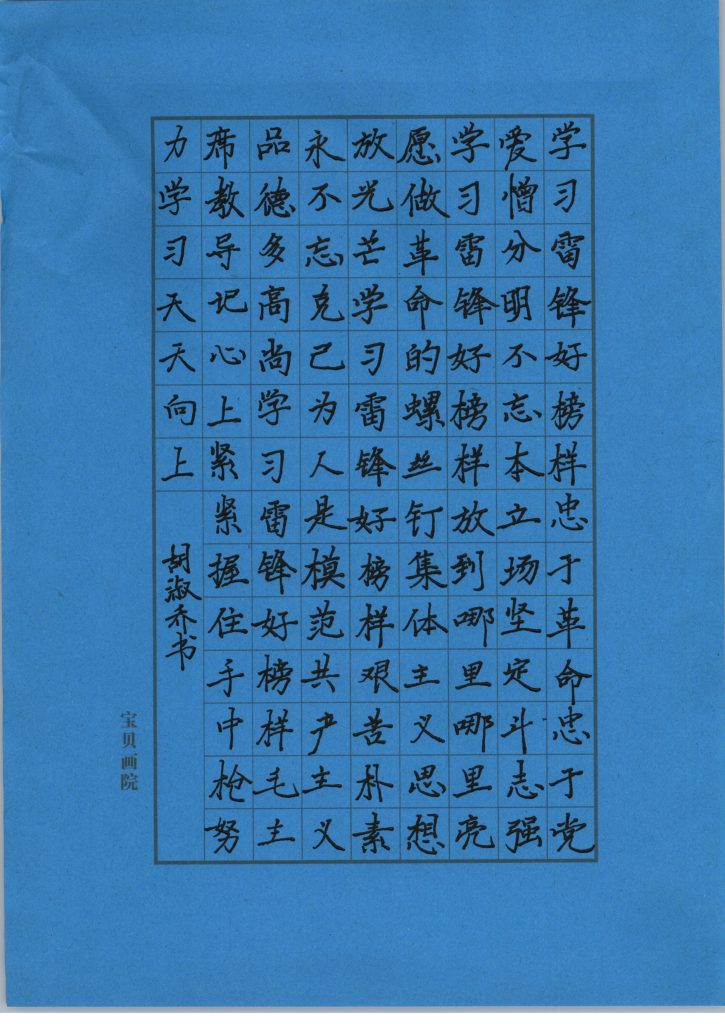 学习雷锋好榜样忠于革命忠于党
爱憎分明不忘本立场坚定斗志强
学习雷锋好榜样放到哪里哪里亮
愿做革命的螺丝钉集体主义思想
放光芒学习雷锋好榜样艰苦朴素
永不忘克己为人是模范共产主义
品德多高尚学习雷锋好榜样毛主
席教导记心上紧紧握住手中枪努
力学习天天向上
胡淑乔书
宝贝画院